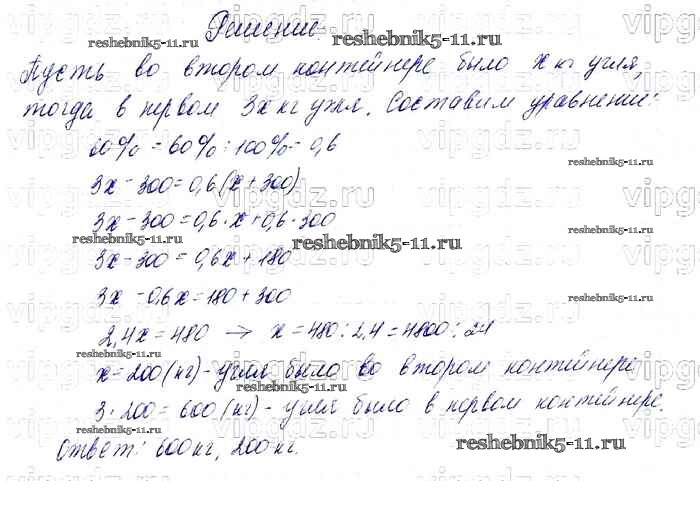 Решение:
Пусть во втором контейнере было x кг угля,
тогда в первом 3x кг угля. Составим уравнение:
60% = 60% : 100% = 0,6
3x - 300 = 0,6(x + 300)
3x - 300 = 0,6 · x + 0,6 · 300
3x - 300 = 0,6x + 180
3x - 0,6x = 180 + 300
2,4x = 480 → x = 480 : 2,4 = 4800 : 24
x = 200 (кг) - угля было во втором контейнере
3 · 200 = 600 (кг) - угля было в первом контейнере.
Ответ: 600 кг, 200 кг.
reshebnik5-11.ru
reshebnik5-11.ru
reshebnik5-11.ru
reshebnik5-11.ru
reshebnik5-11.ru
reshebnik5-11.ru
reshebnik5-11.ru
reshebnik5-11.ru
reshebnik5-11.ru
reshebnik5-11.ru
reshebnik5-11.ru
reshebnik5-11.ru
vipgdz.ru